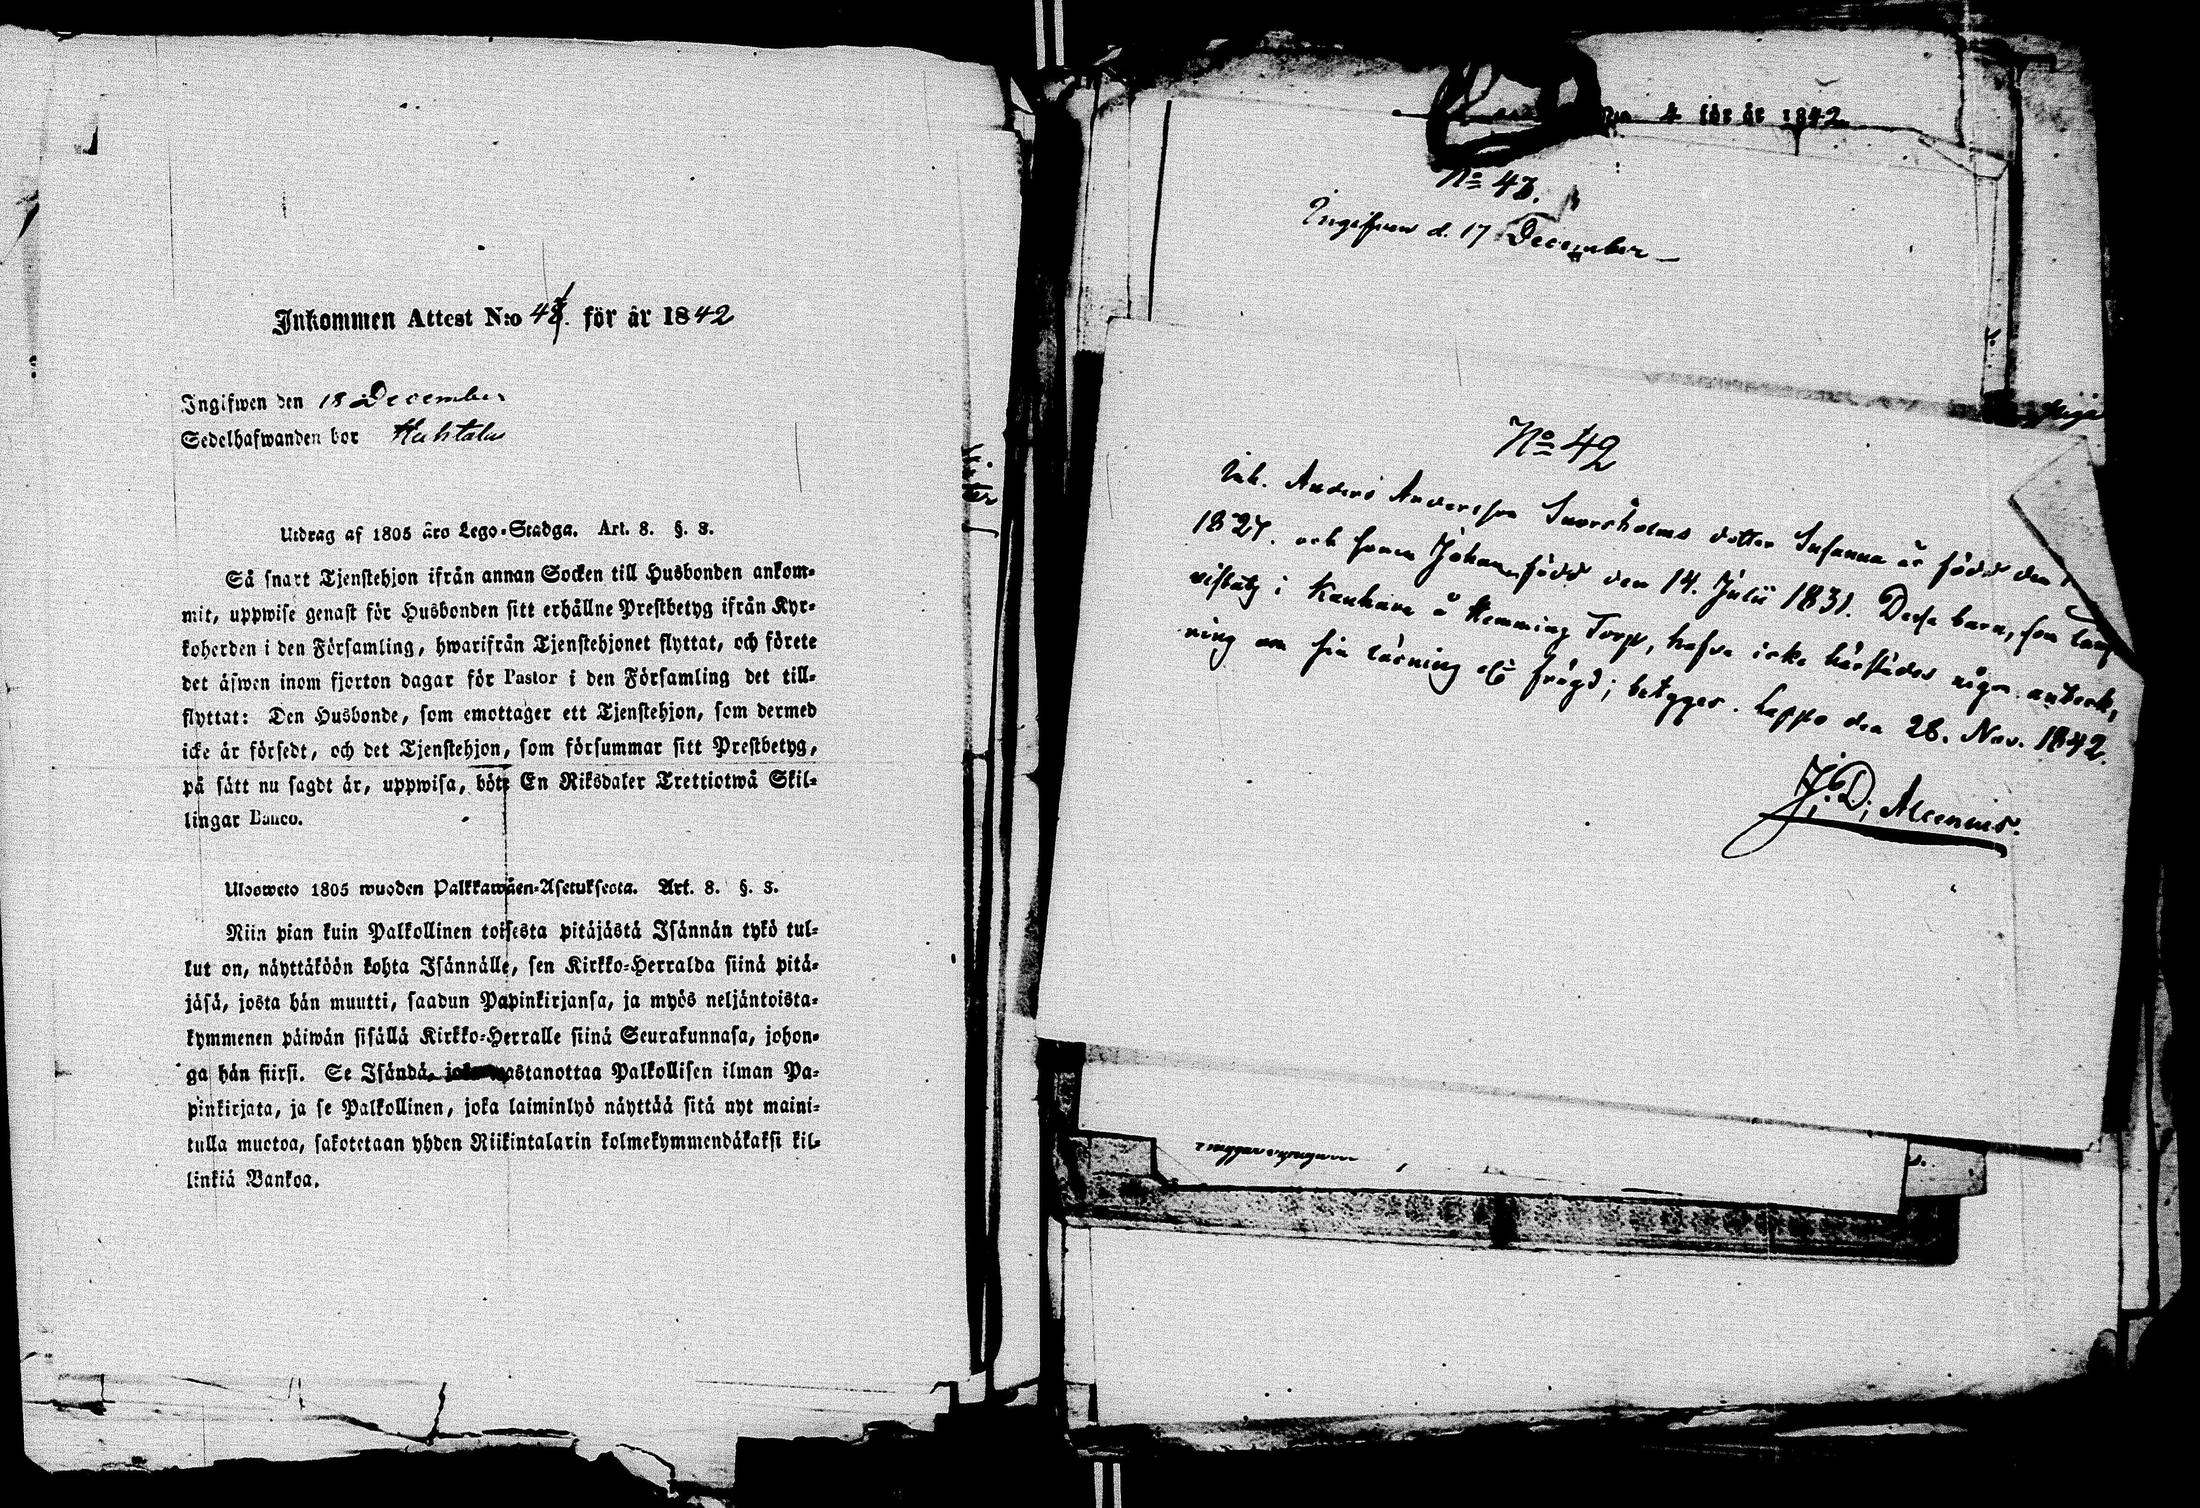 Inkommen Attest N:o 47. för år 1842
Ingifwen den 18 December
Sedelhafwanden bor Huhtala
Utdrag af 1805 års Lego-Stadga. Art. 8. §. 3.
Så snart Tjenstehjon ifrån annan Socken till Husbonden ankom-
mit, uppwise genast för Husbonden sitt erhållne Prestbetyg ifrån Kyr-
koherden i den Församling, hwarifrån Tjenstehjonet flyttat, och förete
det äfwen inom fjorton dagar för Pastor i den Församling det till-
flyttat: Den Husbonde, som emottager ett Tjenstehjon, som dermed
icke är försedt, och det Tjenstehjon, som försummar sitt Prestbetyg,
på sätt nu sagdt är, uppwisa, böte En Riksdaler Trettiotwå Skil-
lingar Banco.
Ulosweto 1805 wuoden Palkkawäen-Asetuksesta. Art. 8. §. 3.
Niin pian kuin Palkollinen toisesta pitäjästä Isännän tykö tul-
lut on, näyttäköön kohta Isännälle, sen Kirkko-Herralda siinä pitä-
jäsä, josta hän muutti, saadun Papinkirjansa, ja myös neljäntoista-
kymmenen päiwän sisällä Kirkko-Herralle siinä Seurakunnasa, johon-
ga hän siirsi. Se Isändä, joka wastanottaa Palkollisen ilman Pa-
pinkirjata, ja se Palkollinen, joka laiminlyö näyttää sitä nyt maini-
tulla muotoa, sakotetaan yhden Riikintalarin kolmekymmendäkaksi kil-
linkiä Bankoa.
4 för år 1842
No 43.
Ingifven d. 17 December
No 42
Inh. Anders Andersson Snorsholms dotter Susanna är född den
1827. och sonen Johan född den 14. Julii 1831. Desse barn, som
vistats i Kauhava å Hemming Torp, hafva icke härstädes någon anteck,
ning om sin läsning och frägd; betygar. Lappo den 28. Nov. 1842.
J. D. Alcenius.